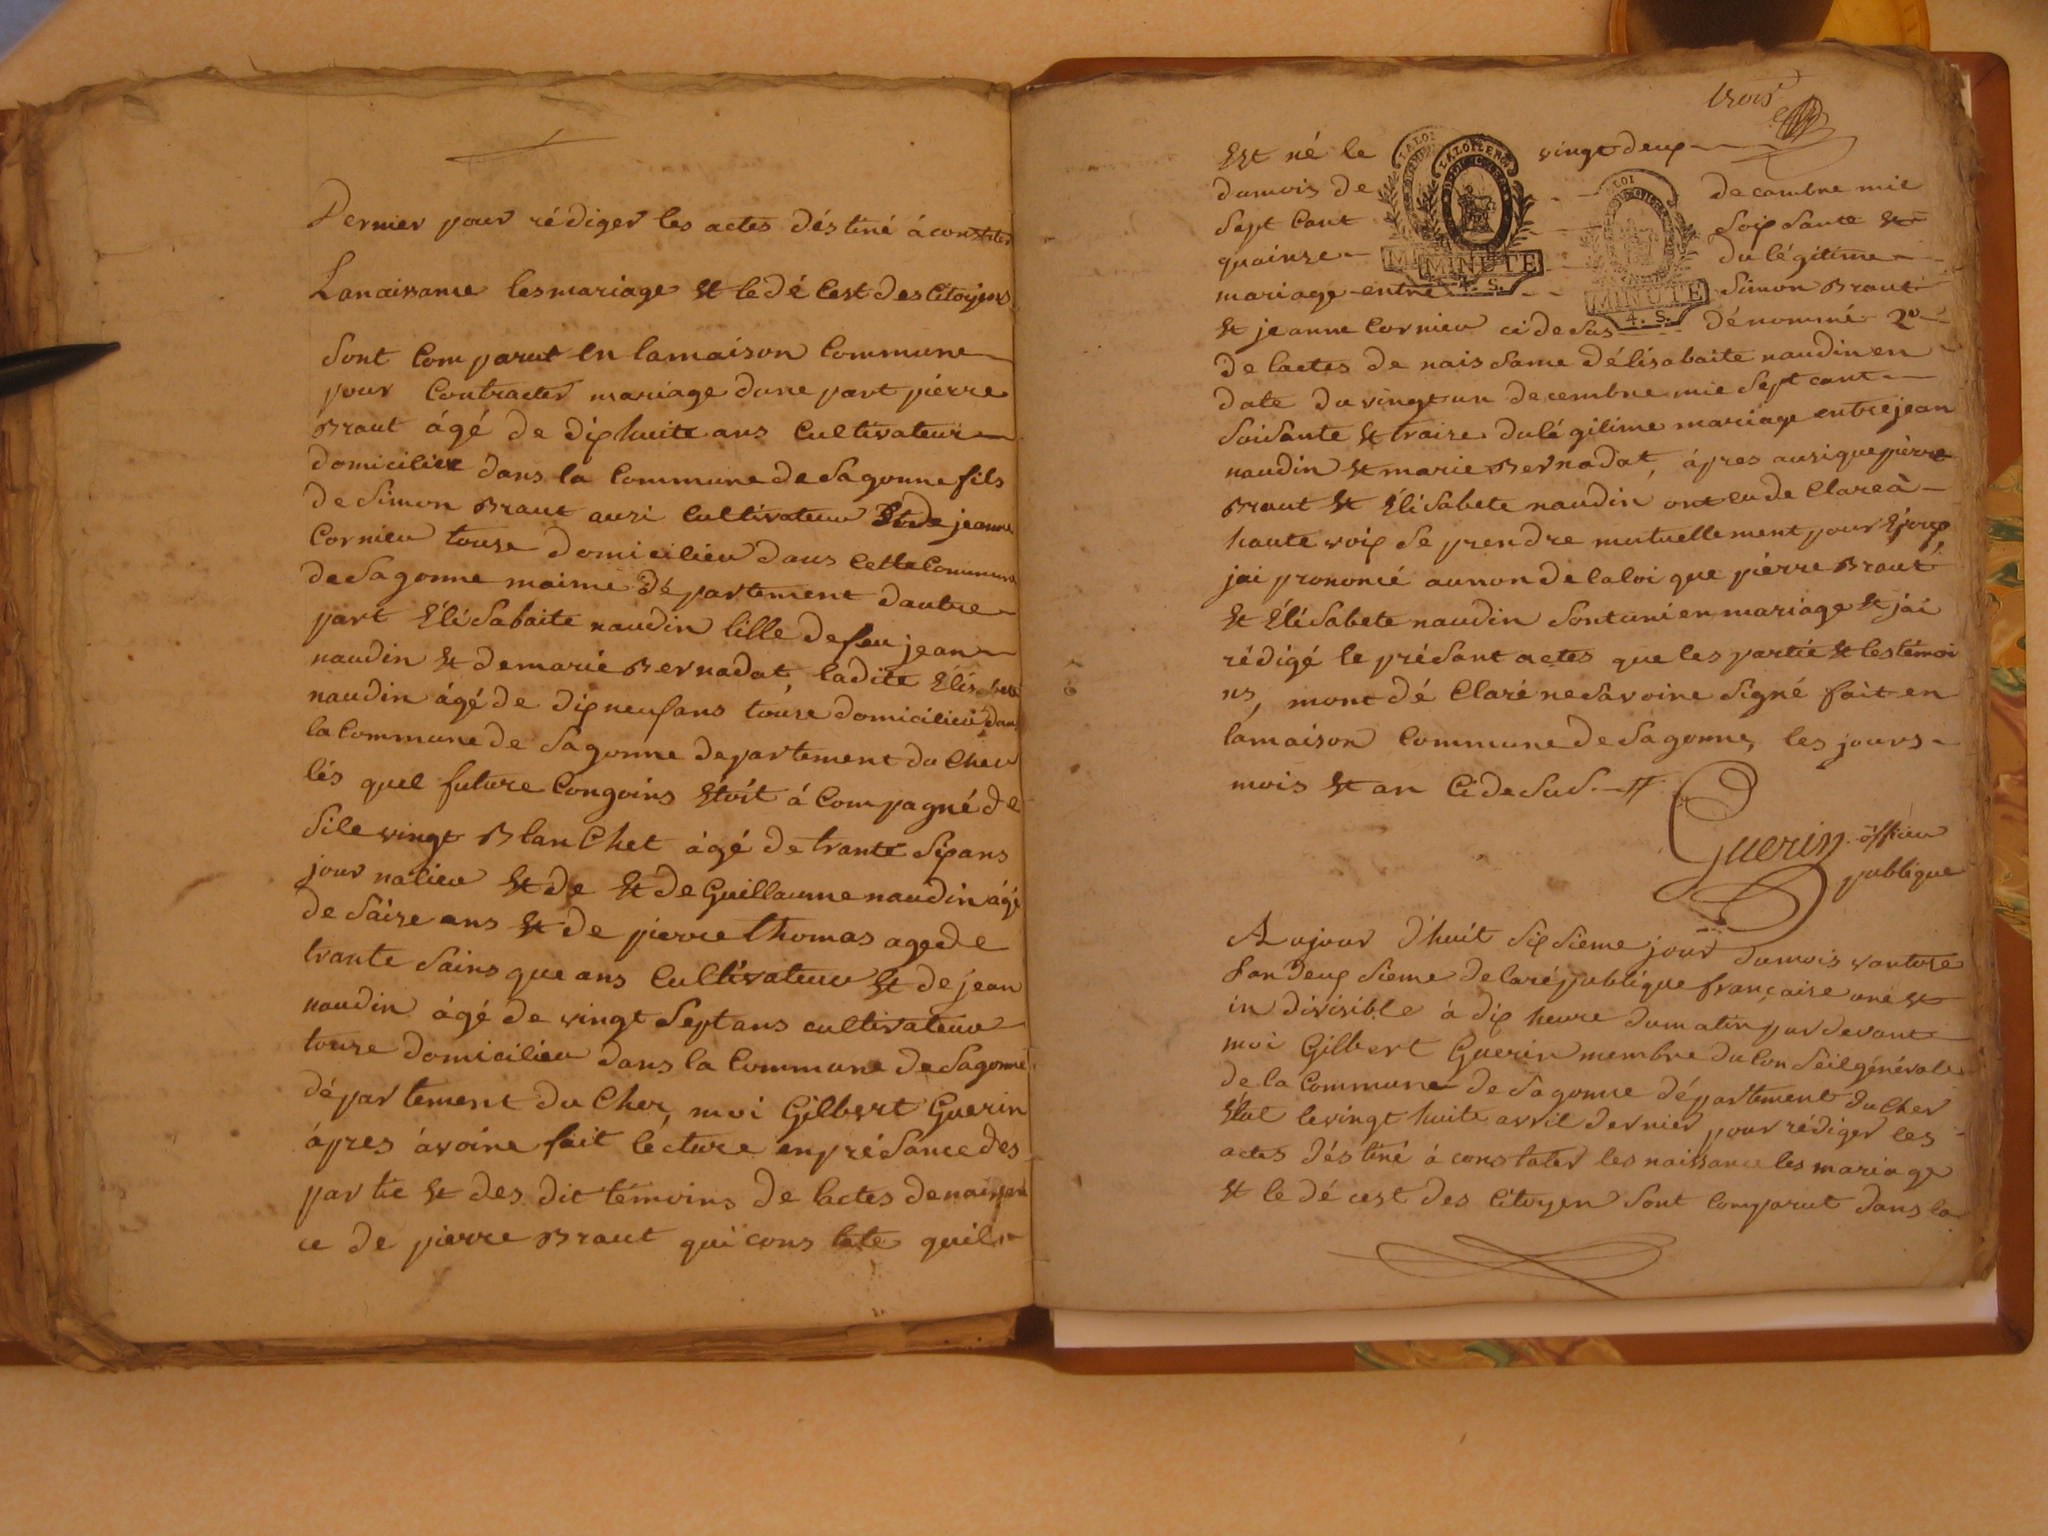 Dernier pour rédiger les actes déstiné á constater
Lanaissance lesmariage et le dé cest des Citoyens
Sont Comparut en lamaison Commune
pour Contracter mariage dune part piérre
Braut ágé de dix huite ans Cultivateur
domicilier dans la Commune de Sagonne fils
de Simon Braut ausi Cultivateur et de jeanne
Cornieu touse domicilieu dans Cette Commune
de Sagonne maime département dautre
part Élisabaite naudin lille de feu jean
naudin et de marie Bernadat, ladite Élisabete
naudin ágé de dix neuf ans touse domicilieu dans
la Commune de Sagonne departement du Cheu
lés quel future Congoins étoit á Compagné de
Silevingt Blanchet ágé de trante Six ans
jour nalieu et de et de Guillaume naudin ágé
de Saise ans et de pierre thomas age de
trante Sains que ans Cultivateuu et de jean
naudin ágé de vingt Sept ans cultivateuu
touse domicilieu dans la Commune de Sagonne
département du Cher, moi Gilbert Guerin
ápres ávoine fait lecture en présance des
partie et des dit témoins de lactes de naissan
ce de pierre Braut qui cons tate quil
trois
Est né le vingt deux
dumois de decambre mil
Sept Cant Soix Sante et
quainse du légitime
mariage entre Simon Braut
et jeanne Cornieu ci de Sus dénommé 2º
de lactes de nais Same délisabaite naudin en
date du vingt un decembre mil Sept cant
Soisante et traise du légitime mariage entre jean
naudin et marie Bernadat, ápres ausi que piérre
Braut et Élisabete naudin ont eu de Clare à
haute voix Se prendre mutuellement pour Époux,
jai prononcé au non de la loi que piérre Braut
et Élisabete naudin Sont uni en mariage et jai
rédigé le présant actes que les partie et les témoi
ns, mont dé Claré ne Savoine Signé fait en
lamaison Commune de Sagonne, les jours
mois et an Ci de Sus.
Guerin officieu
publique
Aujour d'huit Six Sieme jour dumois vantose
Lan deux Sieme de la républigue française une et
in divisible à dix heure du matin par devant
moi Gilbert Guerin membre du Con Seil générale
de la Commune de Sagonne département du Cher
élut le vingt huite avril dernier pour rédiger les
actes déstiné á constater les naissance les mariage
et le dé cest des Citoyen Sont Comparut dans la
LA LOI LE ROI
MINUTE
4. S.
LA LOI
MINUTE
4. S.